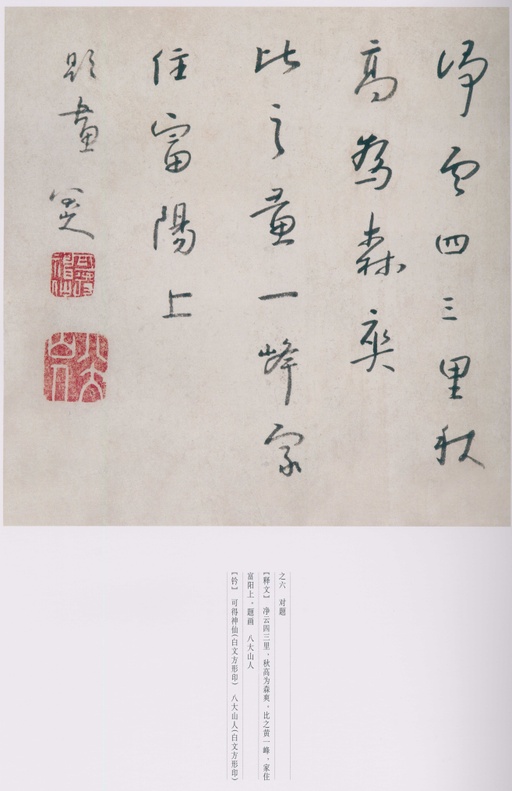 净云四三里秋
高为森爽
比之黄一峰家
住富陽上
題畫 八大山人
可得神仙
八大山人
之六 对题
【释文】 净云四三里，秋高为森爽。比之黄一峰，家住
富阳上。题画 八大山人
【钤】 可得神仙(白文方形印) 八大山人(白文方形印)